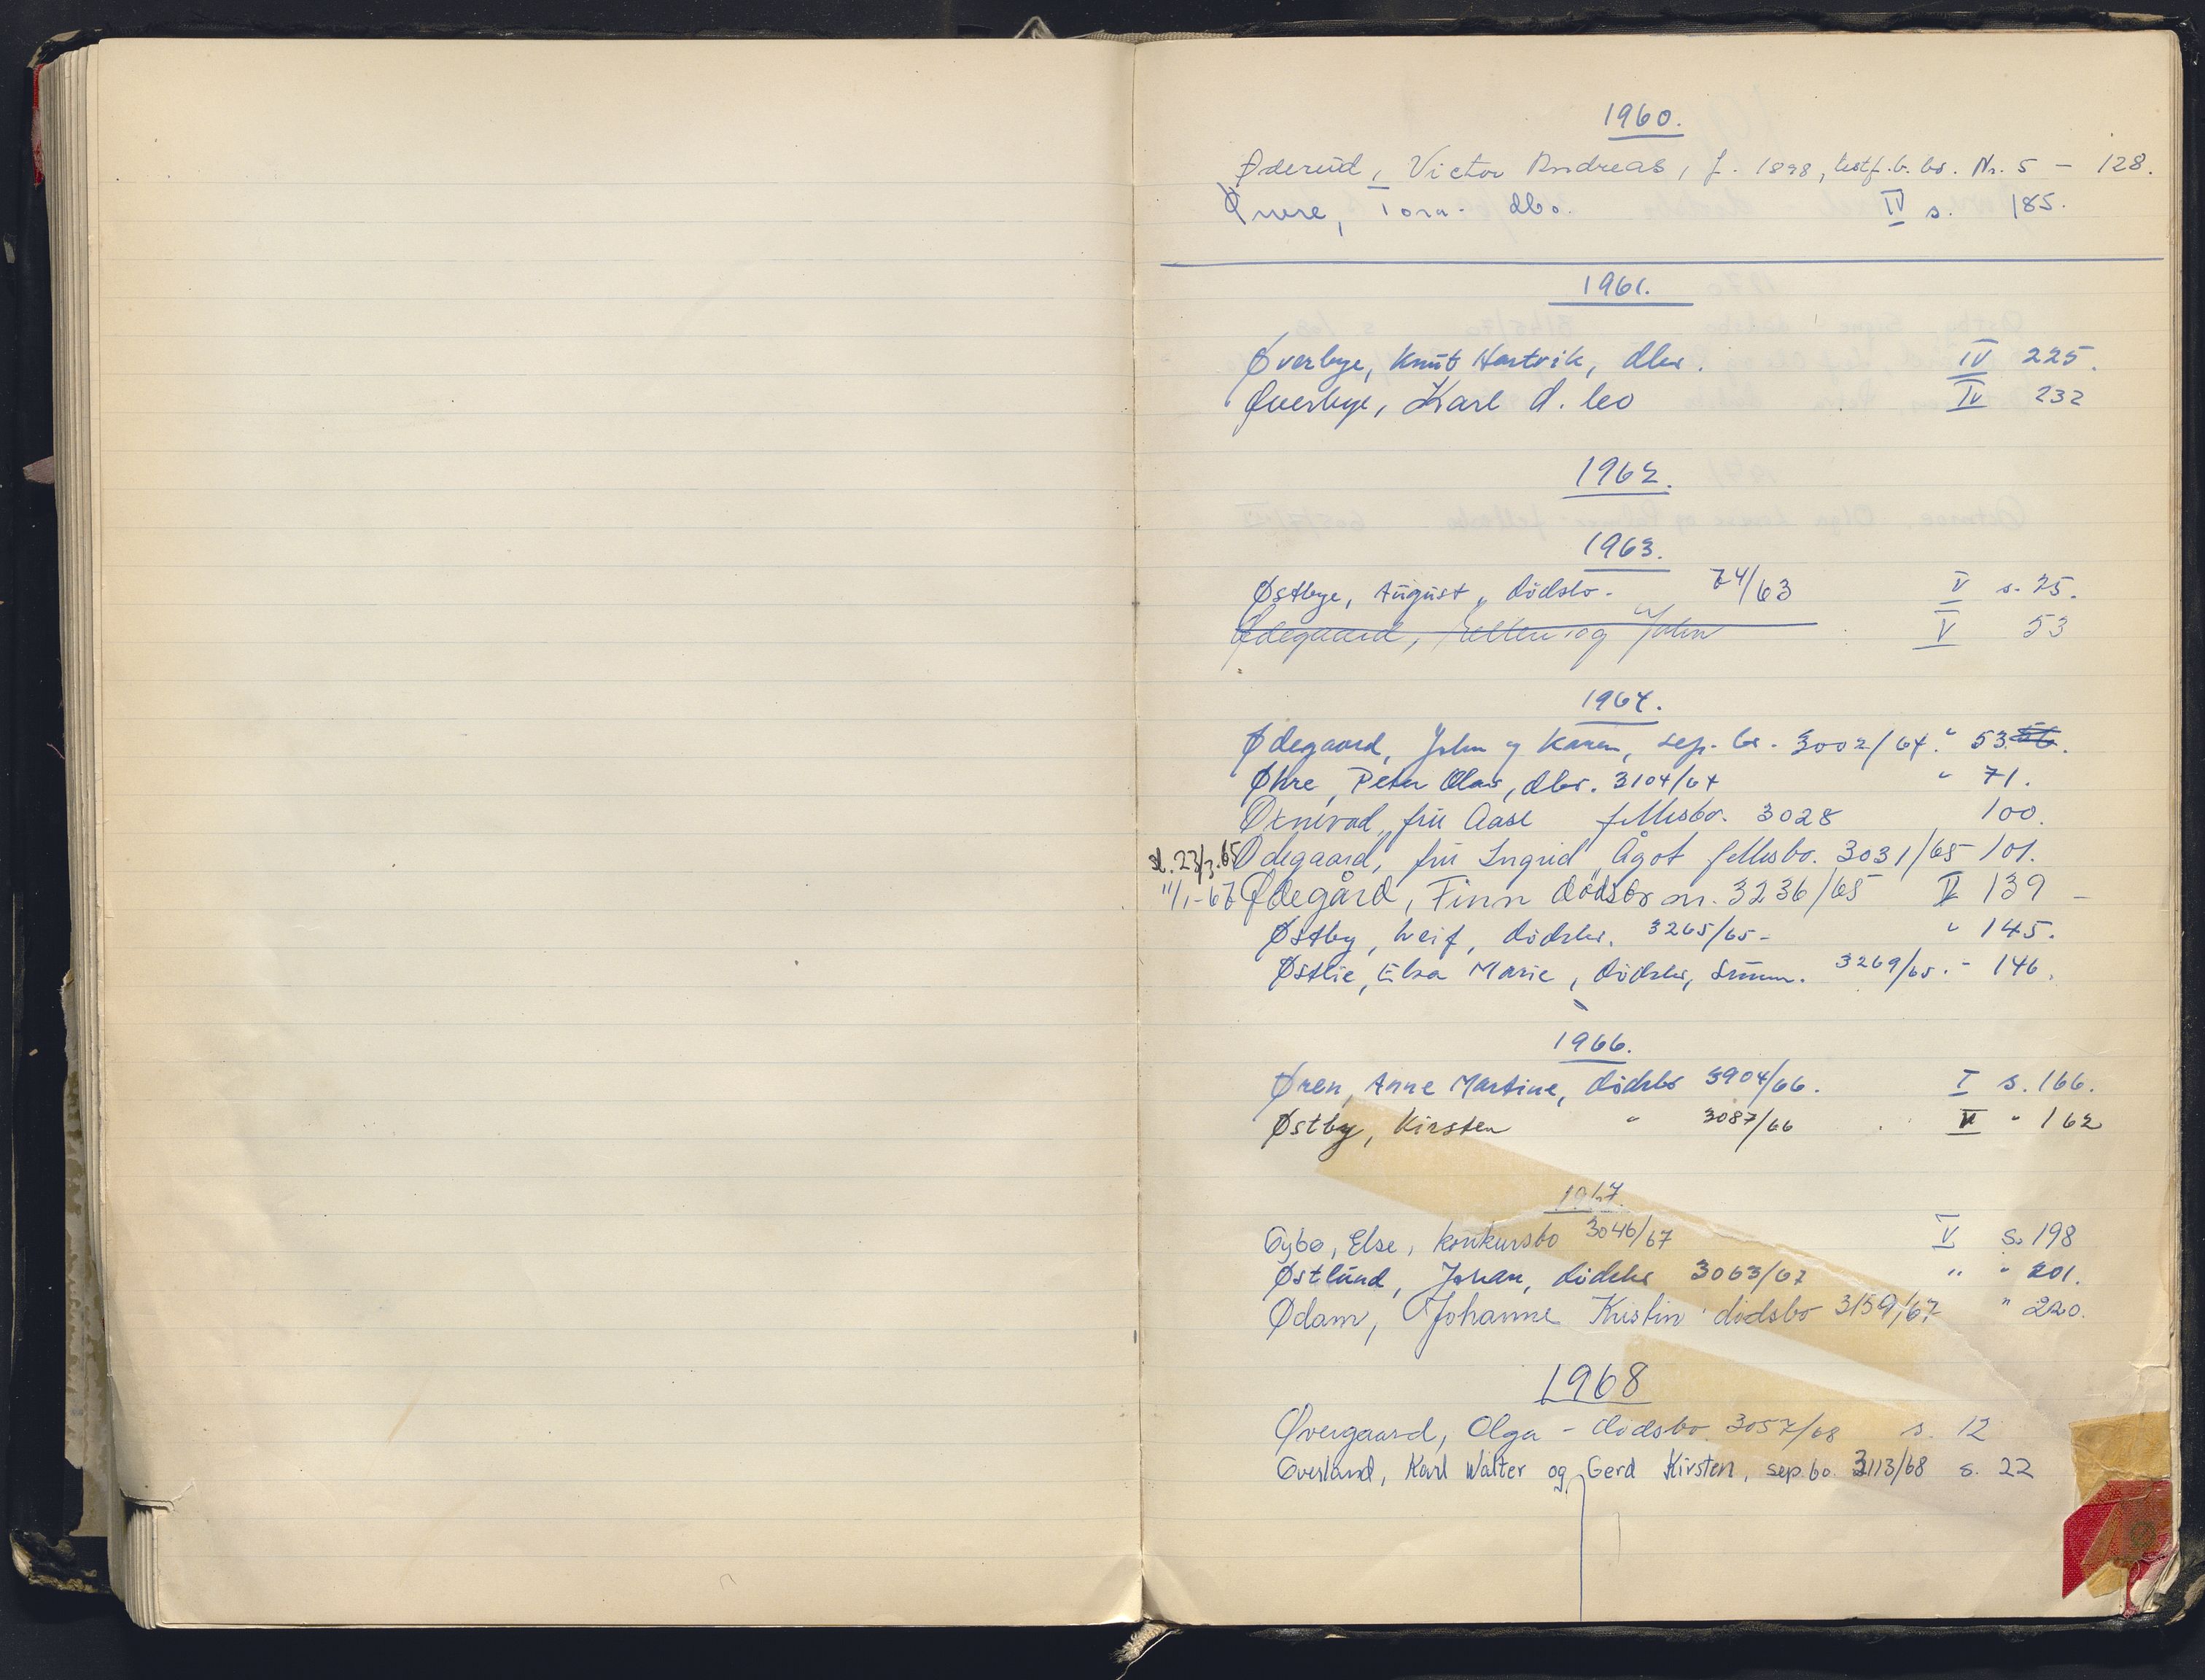 1960.
Øderud, Victor Andreas, f. 1898, testf. b. bo. Nr. 5 - 128.
Øvere, Tora - dbo. IV s. 185.
1961.
Øverbye, Knut Hartvik, dbo. IV 225.
Øverbye, Karl d. bo IV 232
1962.
1963.
Østbye, August, dödsbo - 74/63 V s. 25.
Ødegaard, Ellen og John V 53
1964.
Ødegaard, John og Karen, sep. bo. 3002/64. " 53. 56.
Øhre, Peter Olav, dbo. 3104/64 " 71.
fru Aase fellesbo. 3028 100.
sl. 23/3.65 Ødegaard, fru Ingrid Ågot fellesbo. 3031/65 101.
11/1-67 Ødegård, Finn dödsbo nr. 3236/65 V 139 -
Østby, Leif, dödsbo. 3265/65 - " 145.
Østlie, Elsa Marie, dödsbo, summ. 3269/65. - 146.
1966.
Øren, Anne Martine, dödsbo 3904/66. I s. 166.
Østby, Kirsten " 3087/66 V " 162
1967.
Øybø, Else, konkursbo 3046/67 V s. 198
Østlund, Johan, dödsbo 3063/67 " " 201.
Ødam, Johanne Kristin dødsbo 3159/67 " 220.
1968
Øvergaard, Olga - dødsbo. 3057/68 s. 12
Øverland, Karl Walter og Gerd Kirsten, sep. bo. 3113/68 s. 22